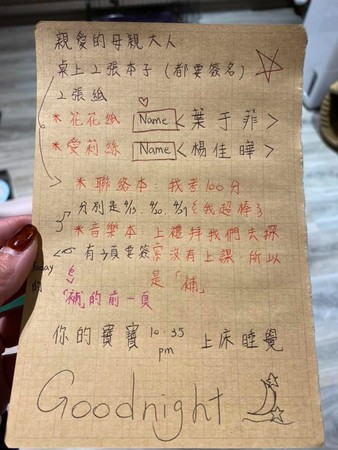 親愛的母親大人
桌上2張本子(都要簽名)
2張紙
*花花紙 Name <葉于菲>
*愛莉絲 Name <楊佳曄>
*聯絡本:我考100分
分別是9/13、9/20、9/21 我超棒
*音樂本:上禮拜我們去探
有3項要簽 索沒有上課 所以
Today 是「補」
的
「補」的前一頁
你的寶寶10:35 pm 上床睡覺
Goodnight